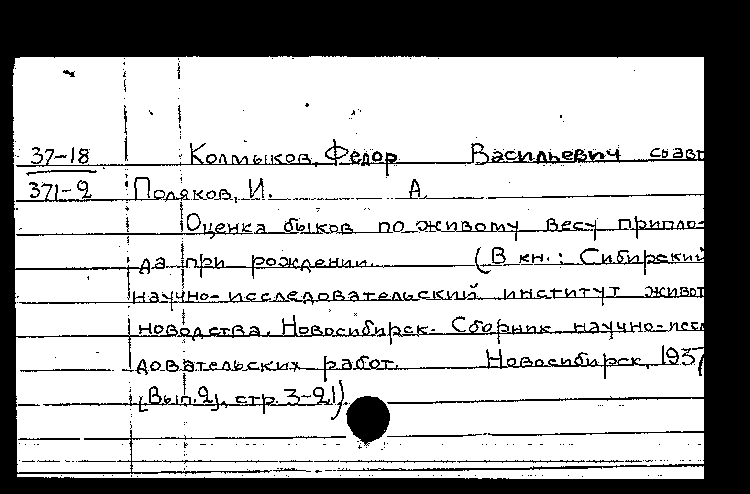 37-18 Колмыков, Федор Васильевич соавт
371-2 Поляков, И. А.
Оценка быков по живому весу припло-
да при рождении. (В кн.: Сибирский
научно-исследовательский институт живот
новодства. Новосибирск. Сборник научно-иссл
довательских работ. Новосибирск, 1937
[Вып.2], стр. 3-21)